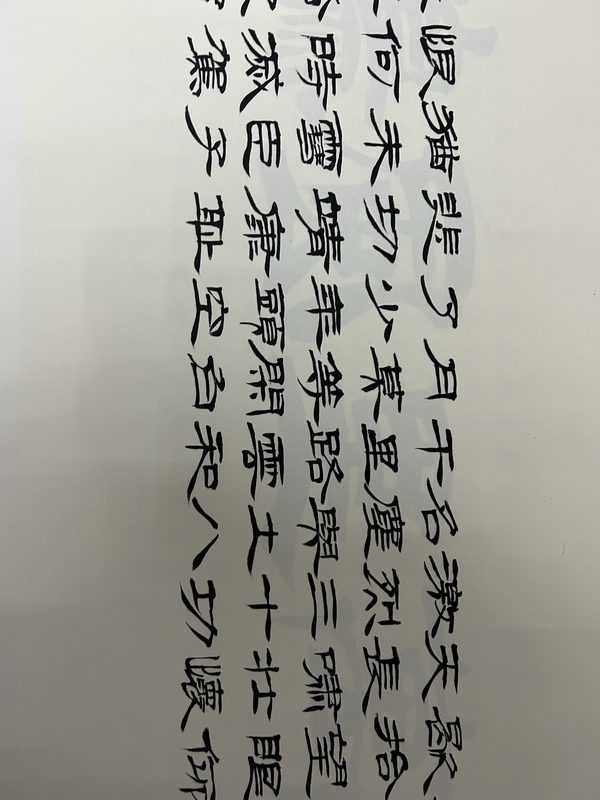 歇抬望眼仰
天長嘯壯懷
激烈三十功
名塵與土八
千里路雲和
月莫等閒白
了少年頭空
悲切靖康恥
猶未雪臣子
恨何時滅駕